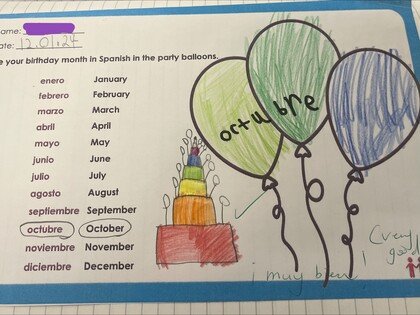 ame:
ate: 12.01.24
e your birthday month in Spanish in the party balloons.
enero January
febrero February
marzo March
abril April
mayo May
junio June
julio July
agosto August
septiembre September
octubre October
noviembre November
diciembre December
octubre
¡ muy bien !
(very good